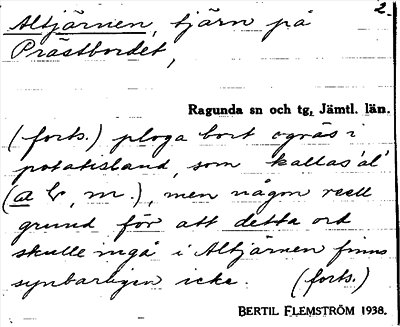 2.
Altjärnen, tjärn på
Prästbordet,
Ragunda sn och tg, Jämtl. län.
(forts.) ploga bort ogräs i
potatisland, som kallas 'al'
(al, m.), men någon reell
grund för att detta ord
skulle ingå i Altjärnen finns
synbarligen icke. (forts.)
BERTIL FLEMSTRÖM 1938.